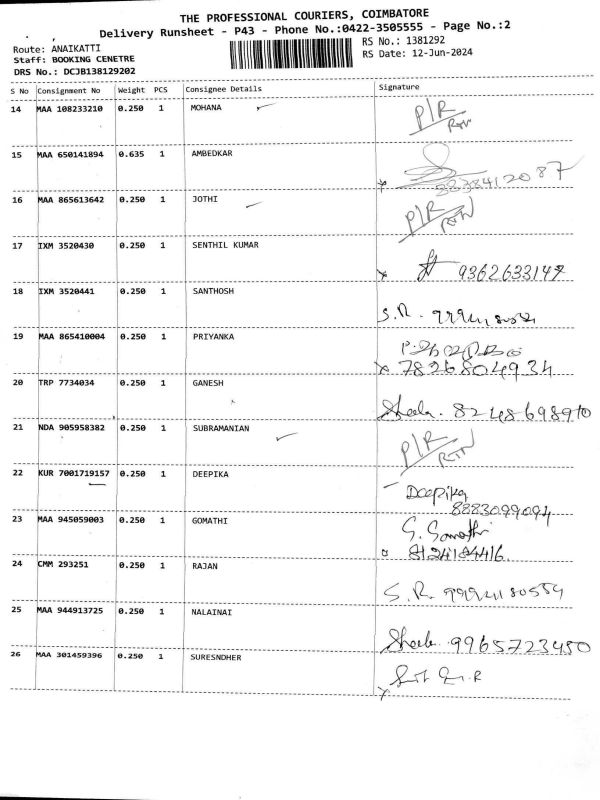 THE PROFESSIONAL COURIERS, COIMBATORE
Delivery Runsheet - P43 - Phone No.:0422-3505555 - Page No.:2
Route: ANAIKATTI
Staff: BOOKING CENETRE
DRS No.: DCJB138129202
RS No.: 1381292
RS Date: 12-Jun-2024
S No Consignment No Weight PCS Consignee Details Signature
14 MAA 108233210 0.250 1 MOHANA P/R RTN
15 MAA 650141894 0.635 1 AMBEDKAR
16 MAA 865613642 0.250 1 JOTHI P/R RTN
17 IXM 3520430 0.250 1 SENTHIL KUMAR 9362633147
18 IXM 3520441 0.250 1 SANTHOSH S.R.
19 MAA 865410004 0.250 1 PRIYANKA
x 7826804934
20 TRP 7734034 0.250 1 GANESH Sheela. 8248698910
21 NDA 905958382 0.250 1 SUBRAMANIAN P/R RTN
22 KUR 7001719157 0.250 1 DEEPIKA Deepika
8883099094
23 MAA 945059003 0.250 1 GOMATHI G. Gomathi
8124184416
24 CMM 293251 0.250 1 RAJAN S.R. 9994180559
25 MAA 944913725 0.250 1 NALAINAI Sheela 9965723450
26 MAA 301459396 0.250 1 SURESNDHER